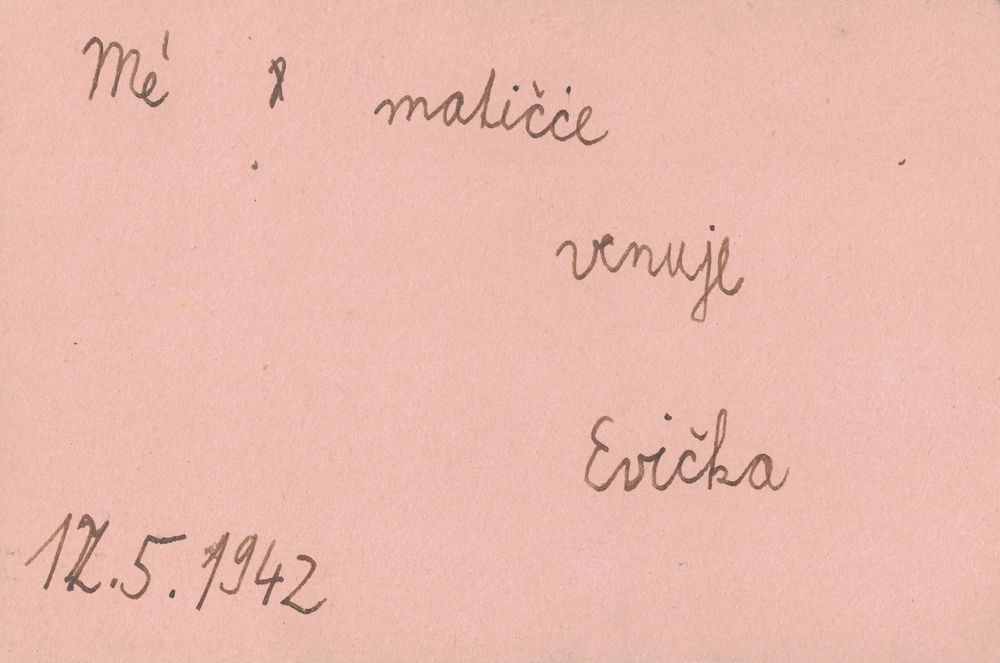 Mé matičce
venuje
Evička
12.5.1942